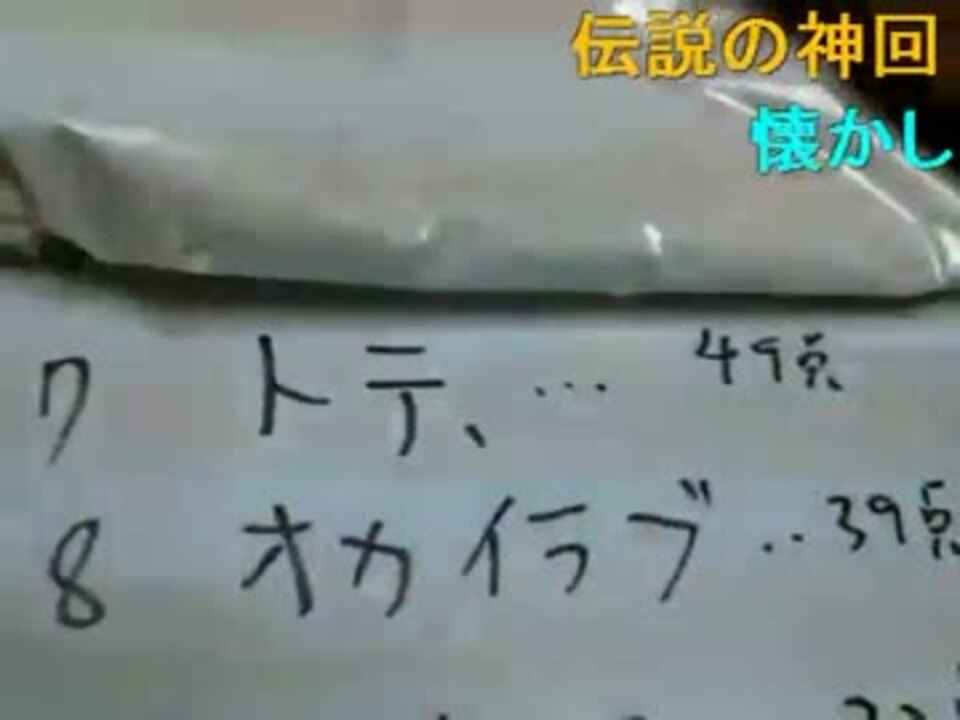 伝説の神回
懐かし
7 トテ、… 49点
8 オカイラブ‥39点